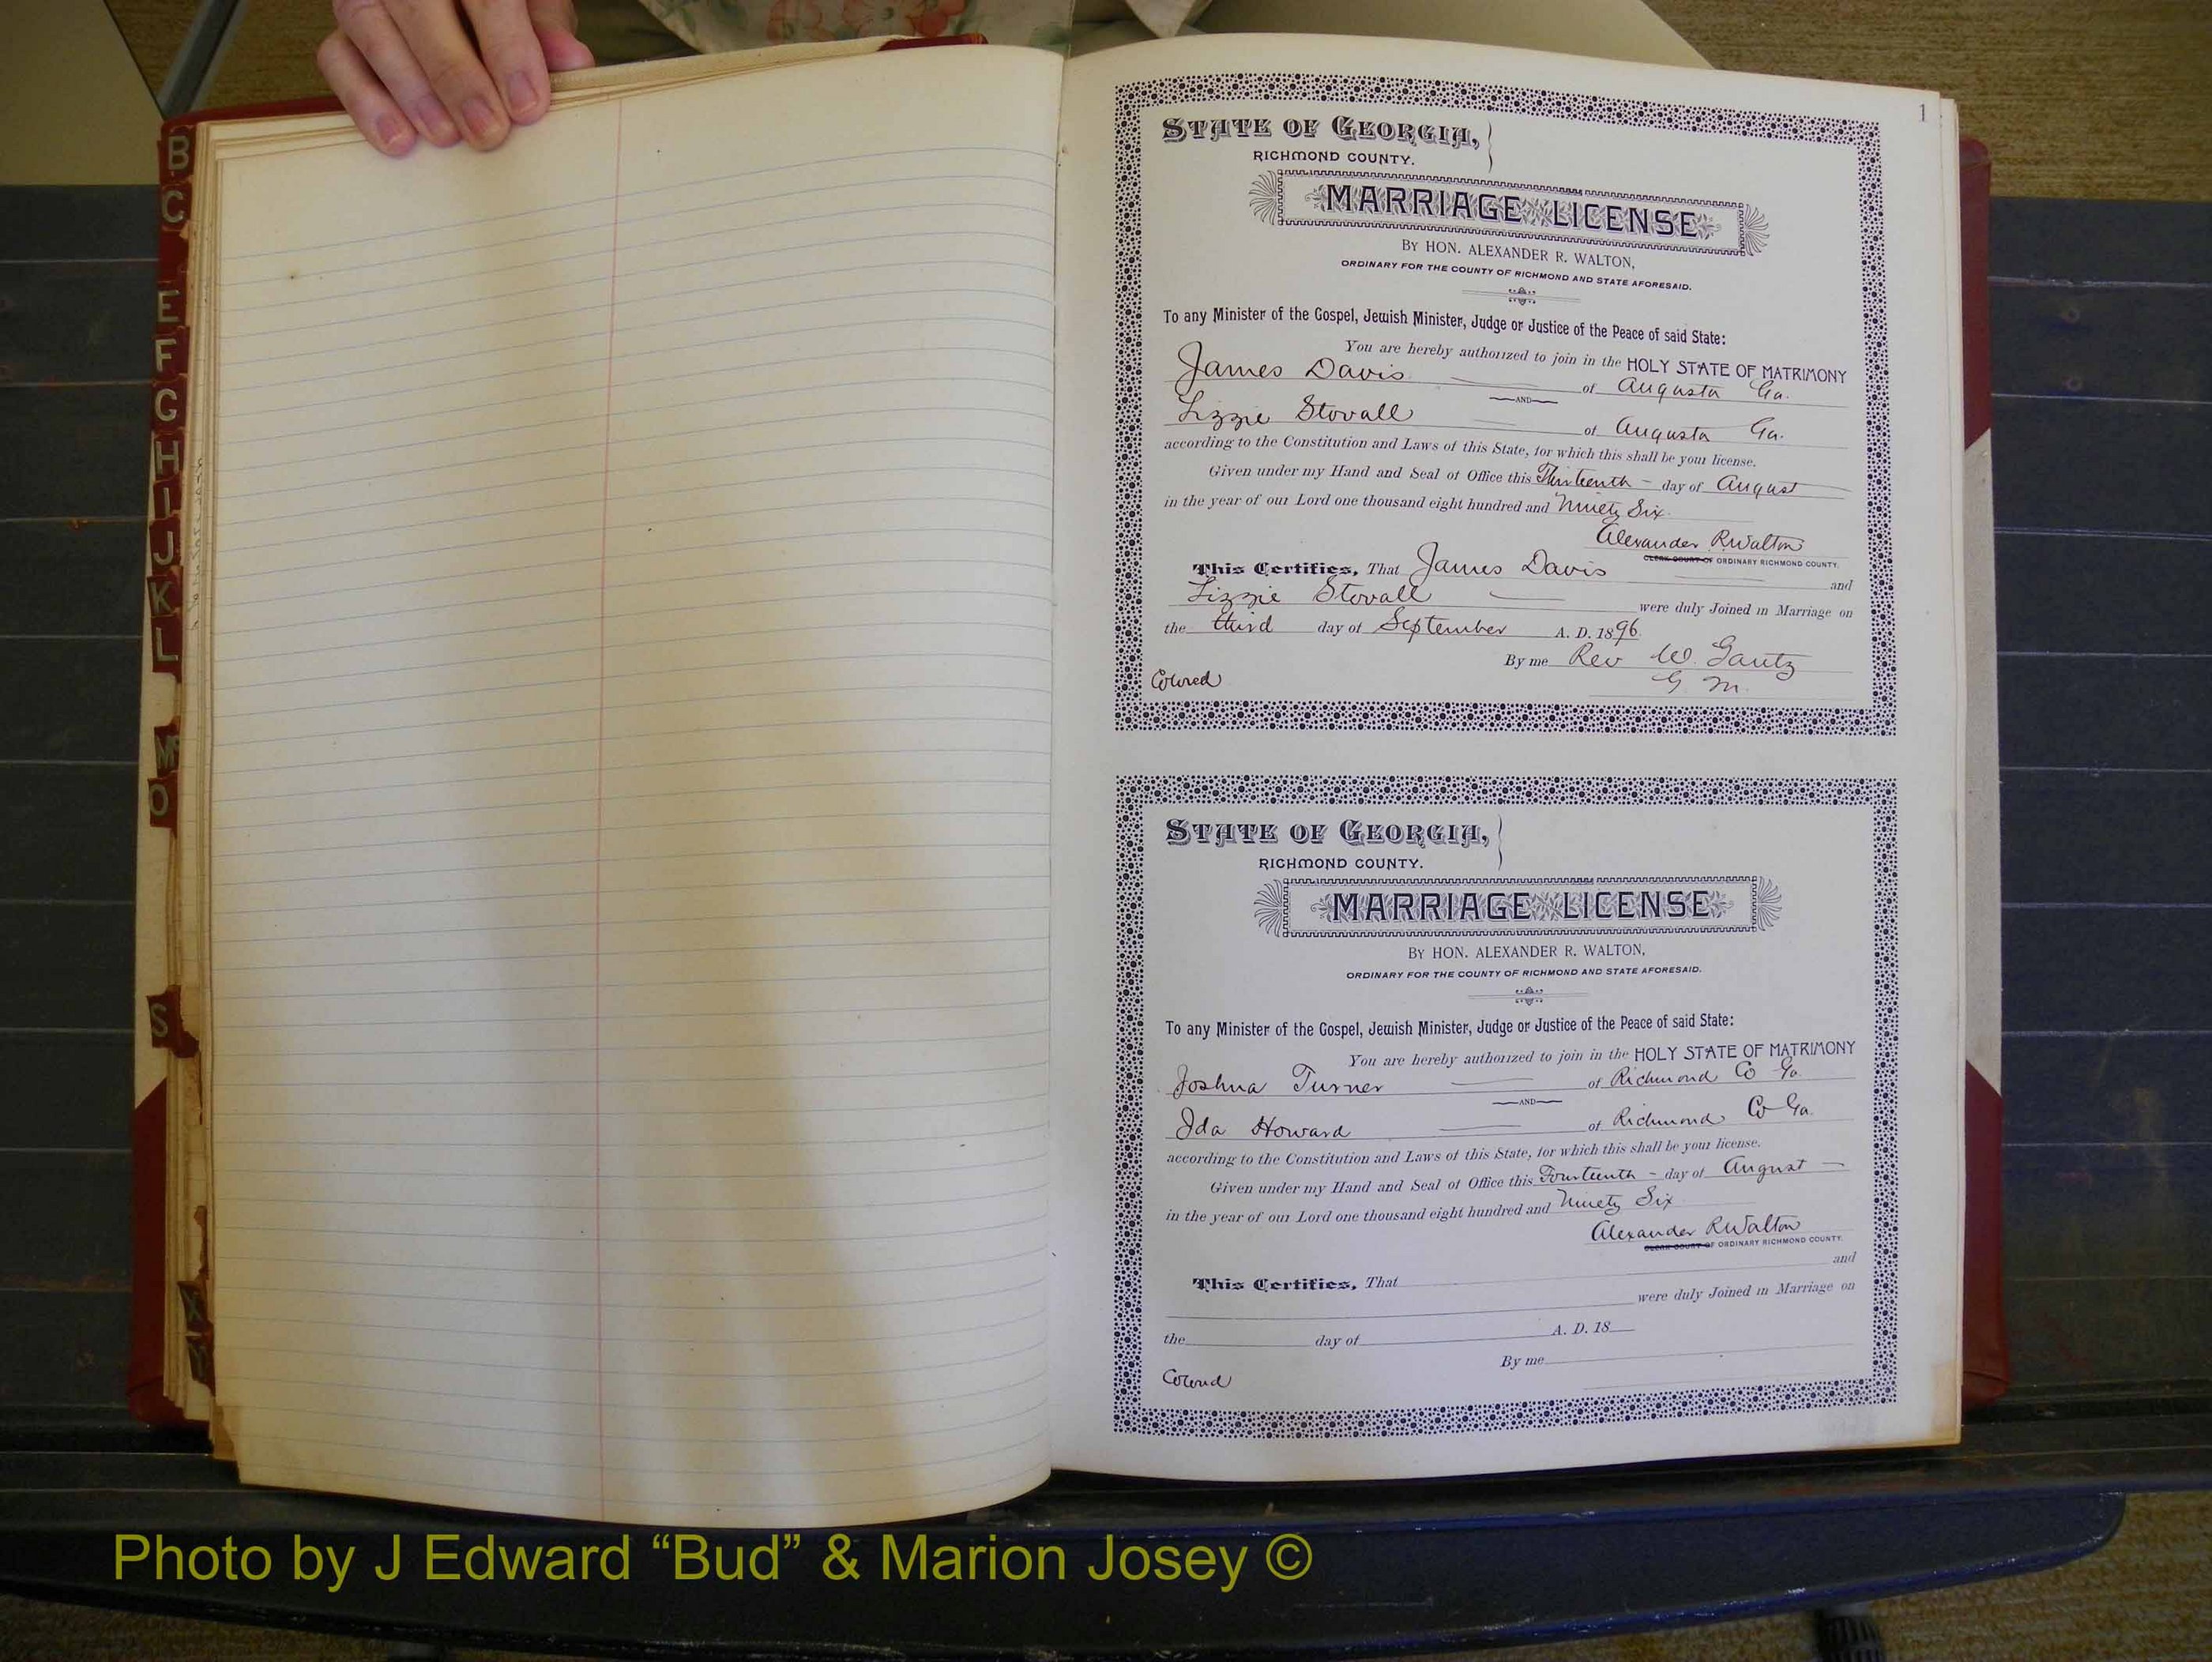 B
C
E
F
G
H
I
J
K
L
Mc
O
S
1
STATE OF GEORGIA,
RICHMOND COUNTY.
MARRIAGE LICENSE
BY HON. ALEXANDER R. WALTON,
ORDINARY FOR THE COUNTY OF RICHMOND AND STATE AFORESAID.
To any Minister of the Gospel, Jewish Minister, Judge or Justice of the Peace of said State:
You are hereby authorized to join in the HOLY STATE OF MATRIMONY
James Davis of Augusta Ga.
AND
Lizzie Stovall of Augusta Ga.
according to the Constitution and Laws of this State, for which this shall be your license.
Given under my Hand and Seal of Office this Thirteenth – day of August
in the year of our Lord one thousand eight hundred and Ninety Six
Alexander R Walton
CLERK COURT OF ORDINARY RICHMOND COUNTY.
This Certifies, That James Davis and
Lizzie Stovall were duly Joined in Marriage on
the third day of September A. D. 1896.
By me Rev W. Gantz
G. M.
Colored
STATE OF GEORGIA,
RICHMOND COUNTY.
MARRIAGE LICENSE
BY HON. ALEXANDER R. WALTON,
ORDINARY FOR THE COUNTY OF RICHMOND AND STATE AFORESAID.
To any Minister of the Gospel, Jewish Minister, Judge or Justice of the Peace of said State:
You are hereby authorized to join in the HOLY STATE OF MATRIMONY
Joshua Turner of Richmond Co Ga.
AND
Ida Howard of Richmond Co Ga.
according to the Constitution and Laws of this State, for which this shall be your license.
Given under my Hand and Seal of Office this Fourteenth – day of August –
in the year of our Lord one thousand eight hundred and Ninety Six
Alexander R Walton
CLERK COURT OF ORDINARY RICHMOND COUNTY.
This Certifies, That and
were duly Joined in Marriage on
the day of A. D. 18
By me
Colored
Photo by J Edward “Bud” & Marion Josey ©